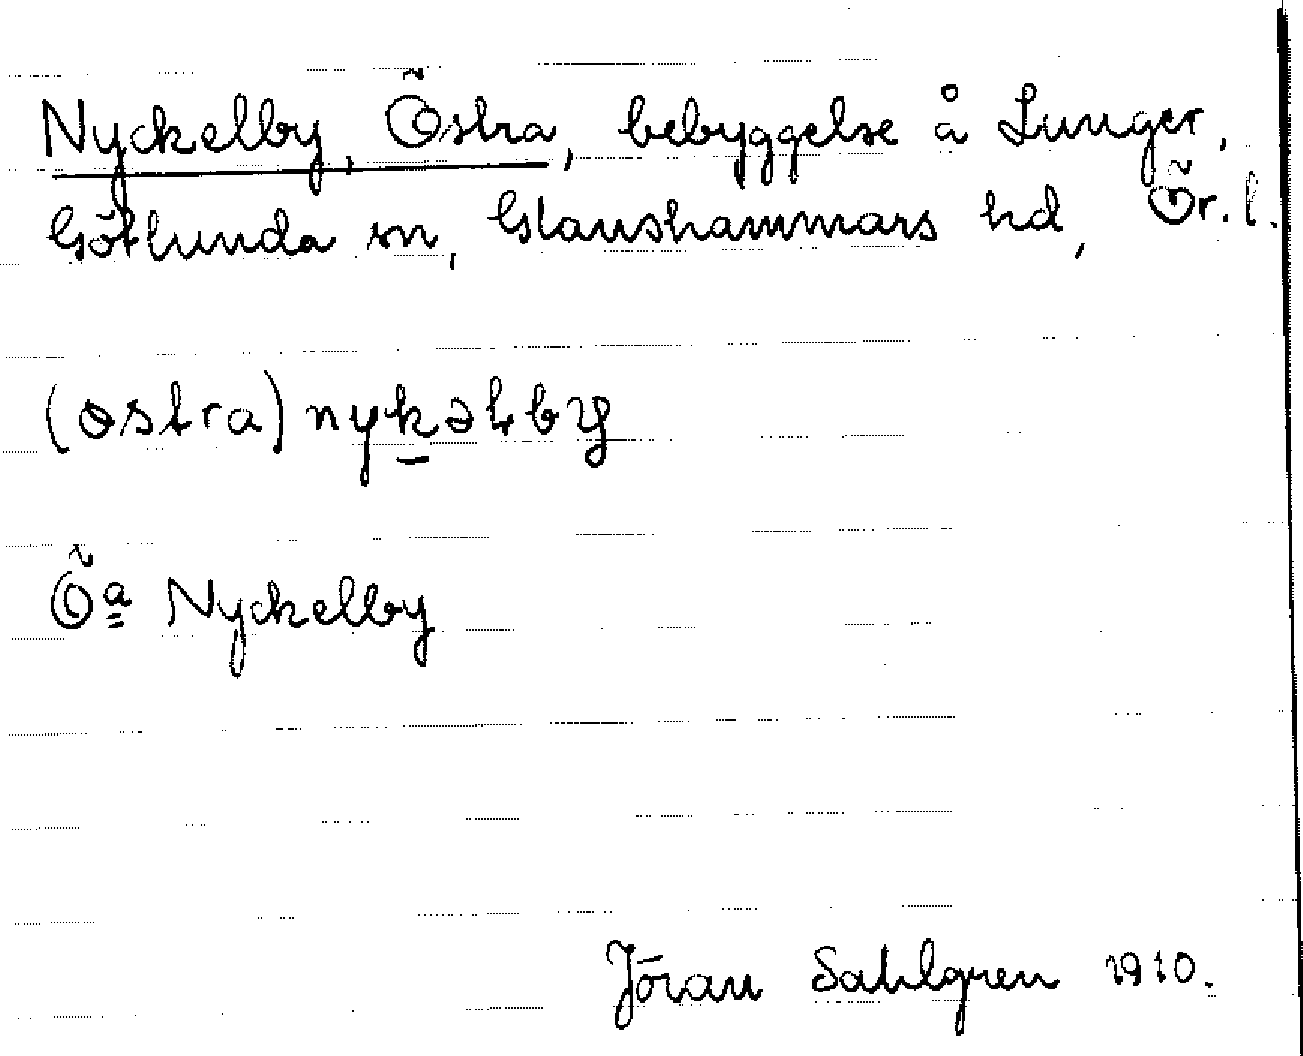 Nyckelby, Östra, bebyggelse å Lunger,
Götlunda sn, Glanshammars hd, Ör. l.
(östra) nykəlby
Öa Nyckelby
Jöran Sahlgren 1910.